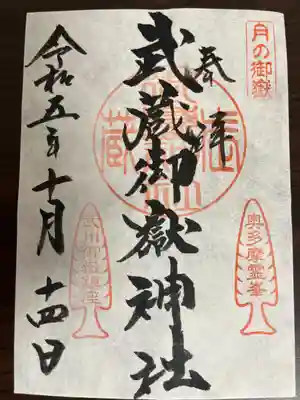 月の御嶽
奉拝
武蔵御嶽神社
奥多摩霊峯
令和五年十月十四日